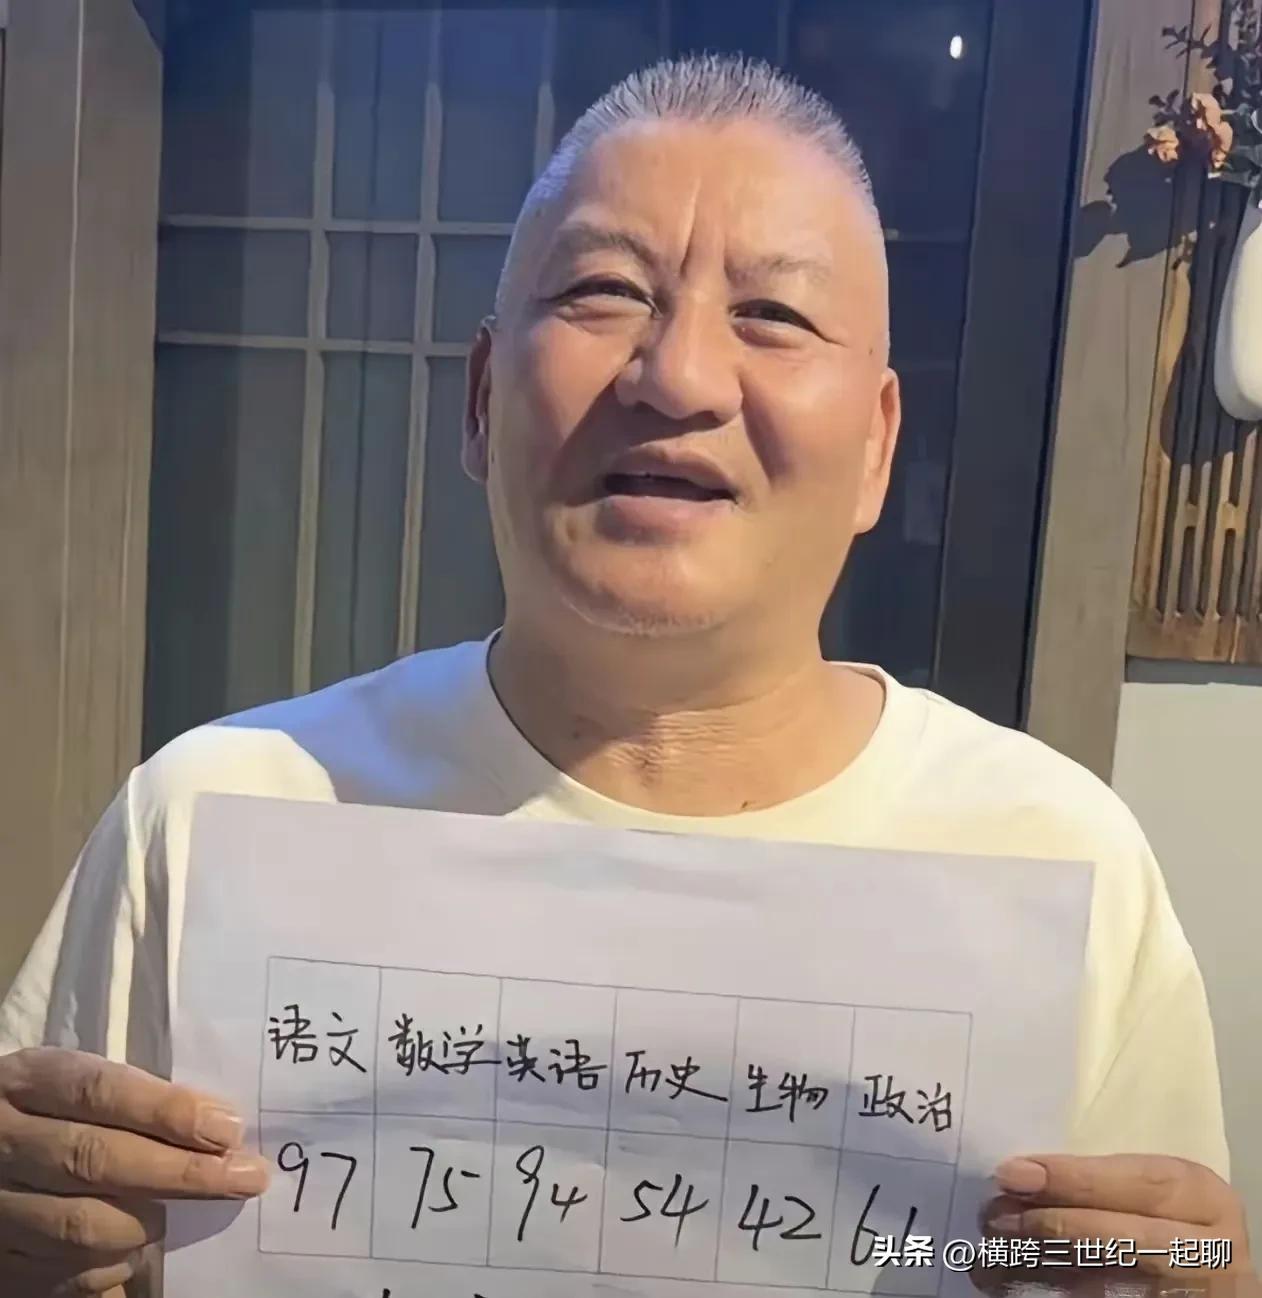 语文 数学 英语 历史 生物 政治
97 75 94 54 42 61
头条 @横跨三世纪一起聊